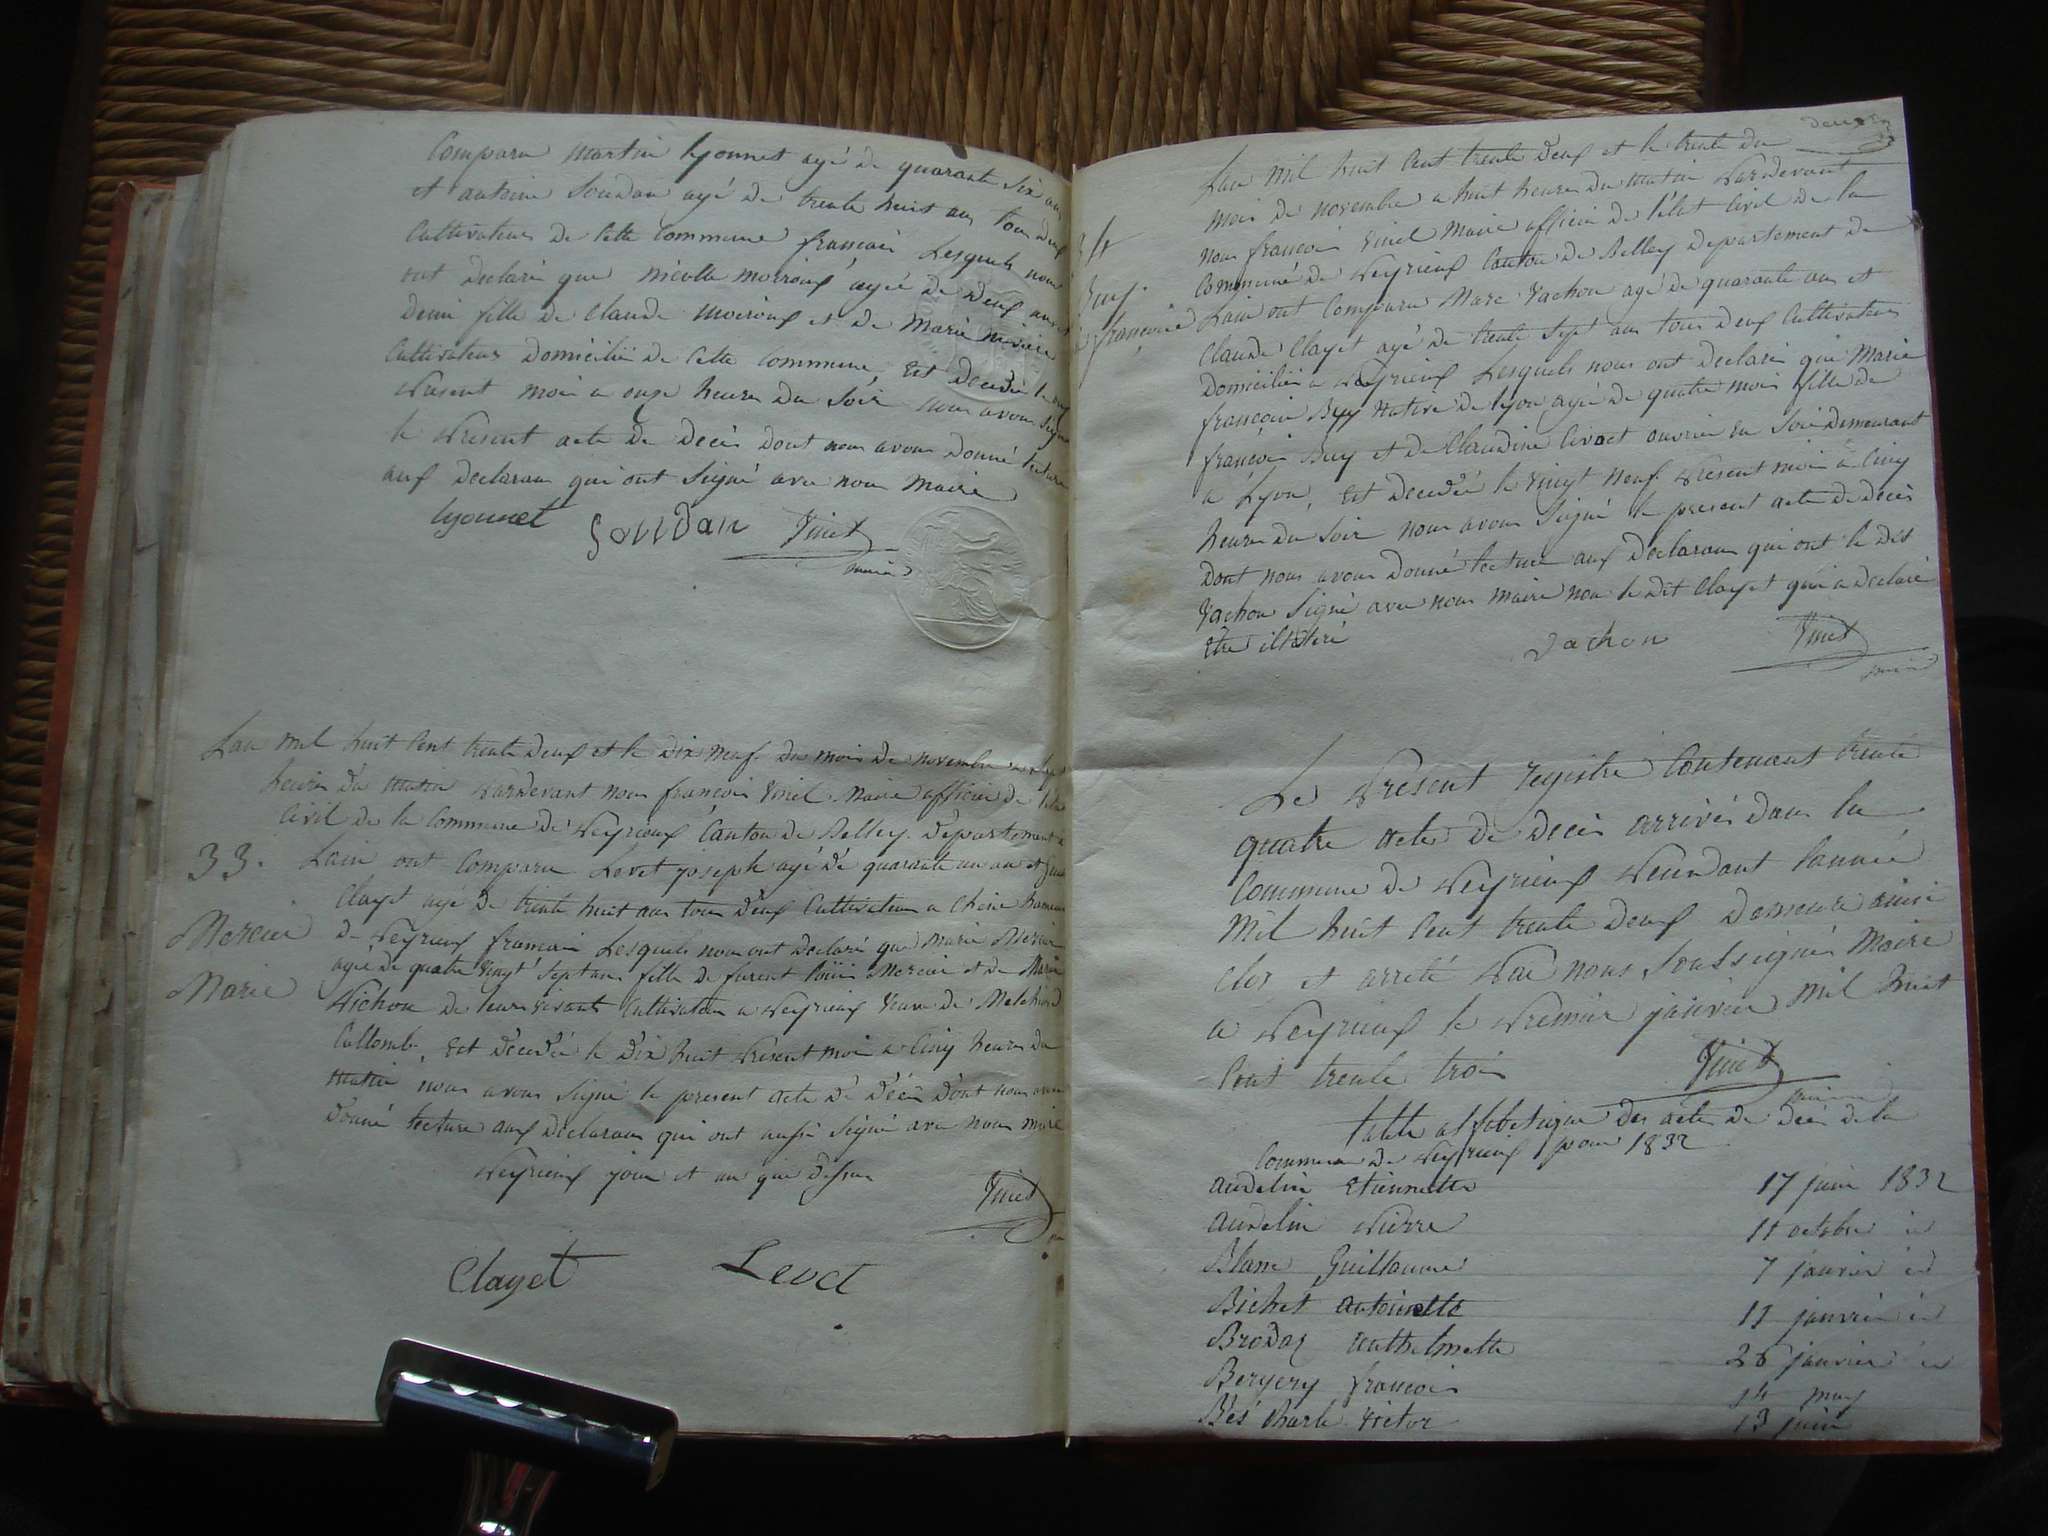 Comparu martin lyonnet agé de quarante six ans
et antoine Soudan agé de trente huit ans tous deux
Cultivateurs de cette Commune francais Lesquels nous
ont declaré que nicolle moiroux agée de deux ans et
demi fille de Claude moiroux et de Marie
Cultivateurs domiciliés de cette commune, Est decedée le
present mois a onze heures du soir nous avons signé
le present acte de decès dont nous avons donné lecture
aux declarans qui ont signé avec nous Maire
lyonnet Souvdan Vinet
maire
Lan mil huit Cent trente deux et le dix neuf du mois de novembre
heures du matin pardevant nous francois Vinet Maire officier de l'état
Civil de la Commune de peyrieux Canton de Belley Departement de
33. Lain ont Comparu Levet joseph agé de quarante un an et
Clayet agé de trente huit ans tous deux Cultivateurs a
Mercier de peyrieux francais Lesquels nous ont declaré que Marie Mercier
agée de quatre vingt sept ans fille de furent Mercier et de Marie
Marie pichon de leur vivant Cultivateurs a peyrieux veuve de Melchior
Cullomb, Est decedée le dix huit présent mois a Cinq heures du
matin nous avons signé le present acte de décès dont nous avons
donné lecture aux declarans qui ont aussi signé avec nous maire
peyrieux jour et an que dessus
Vinet
Clayet Levet
Lan mil huit Cent trente deux et le trente du
mois de novembre a huit heures du matin pardevant
34 nous francois Vinet Maire officier de l'état Civil de la
Commune de peyrieux Canton de Belley departement de
Buy. Lain ont Comparu Marc Vachon agé de quarante ans et
francoise Claude Clayet agé de trente sept ans tous deux Cultivateurs
domiciliés a peyrieux Lesquels nous ont declaré que Marie
francoise Buy Native de lyon agée de quatre mois fille de
francois Buy et de Claudine Civoct ouvriers En Soie demeurant
a Lyon, Est decedée le vingt neuf présent mois a Cinq
heures du soir nous avons signé le present acte de decès
dont nous avons donné lecture aux declarans qui ont le dit
Vachon signé avec nous maire non le dit Clayet qui a declaré
Etre illitéré Vachon Vinet
maire
Le present registre Contenant trente
quatre actes de decès arrivés dans la
Commune de peyrieux pendant l'année
mil huit Cent trente deux demeure ainsi
Clos et arreté par nous soussigné Maire
a peyrieux le premier janvier mil huit
Cent trente trois Vinet
maire
table alfabetique des actes de decès de la
Commune de peyrieux pour 1832
Audelin Etiennette 17 juin 1832
Audelin pierre 11 octobre id
Blanc Guillaume 7 janvier id
Bichet Antoinette 11 janvier id
Brodaz Anthelmette 28 janvier id
Bergery francois 14 may
Bés Charle Victor 13 juin